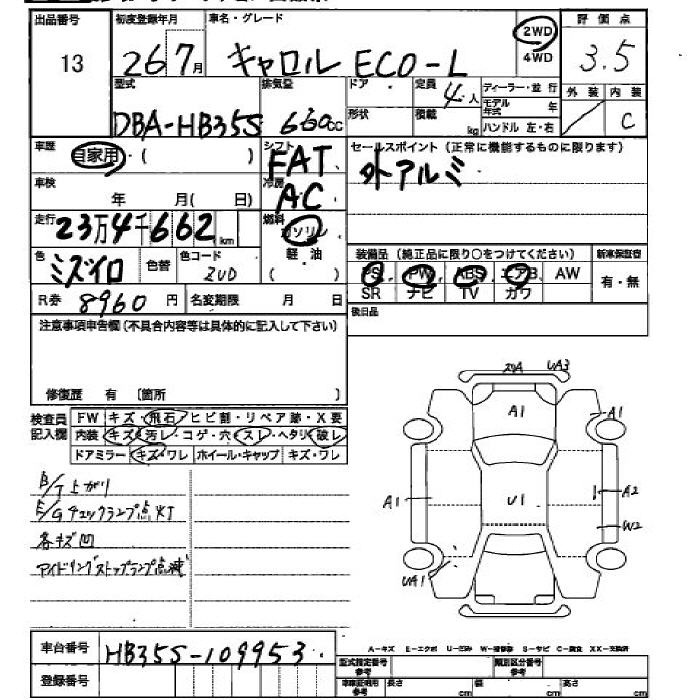 出品番号 初度登録年月 車名・グレード 2WD 4WD 評価点
13 26 7月 キャロル ECO-L 3.5
型式 排気量 ドア 定員 4人 ディーラー・並行 外装 内装
モデル年式 年
DBA-HB35S 660cc 形状 積載 kg ハンドル 左・右 C
車歴 自家用・( ) シフト FAT セールスポイント(正常に機能するものに限ります)
外アルミ
車検 年 月( 日) 冷房 AC
走行 23万4千662km 燃料 ガソリン
軽油
( )
色 ミズイロ 色替 色コード ZUD
装備品(純正品に限り○をつけてください) 新車保証書
PS PW ABS エアB AW 有・無
SR ナビ TV カワ
R券 8960円 名変期限 月 日
後日品
注意事項申告欄(不具合内容等は具体的に記入して下さい)
修復歴 有 〔箇所 〕
検査員記入欄 FW キズ・飛石・ヒビ割・リペア跡・X要
内装 キズ・汚レ・コゲ・穴・スレ・ヘタリ・破レ
ドアミラー キズ・ワレ ホイール・キャップ キズ・ワレ
上がり
E/Gチェックランプ点灯
各キズ凹
アイドリングストップランプ点滅
UA3
A1 A1
A1 U1 A2
W2
UA1
車台番号 HB35S-109953
登録番号
A-キズ E-エクボ U-凹み W-補修跡 S-サビ C-腐食 XX-交換済
型式指定番号 参考 類別区分番号 参考
車庫証明用 参考 長さ cm 幅 cm 高さ cm